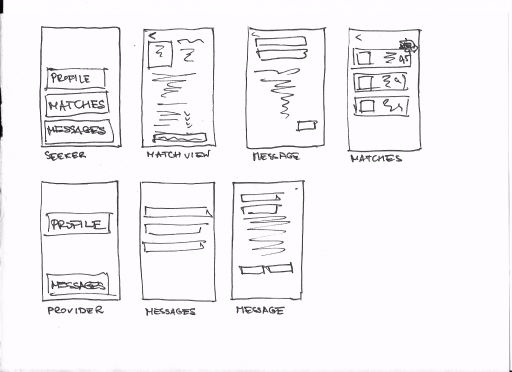 PROFILE
MATCHES
MESSAGES
SEEKER
MATCH VIEW
MESSAGE
MATCHES
PROFILE
MESSAGES
PROVIDER
MESSAGES
MESSAGE